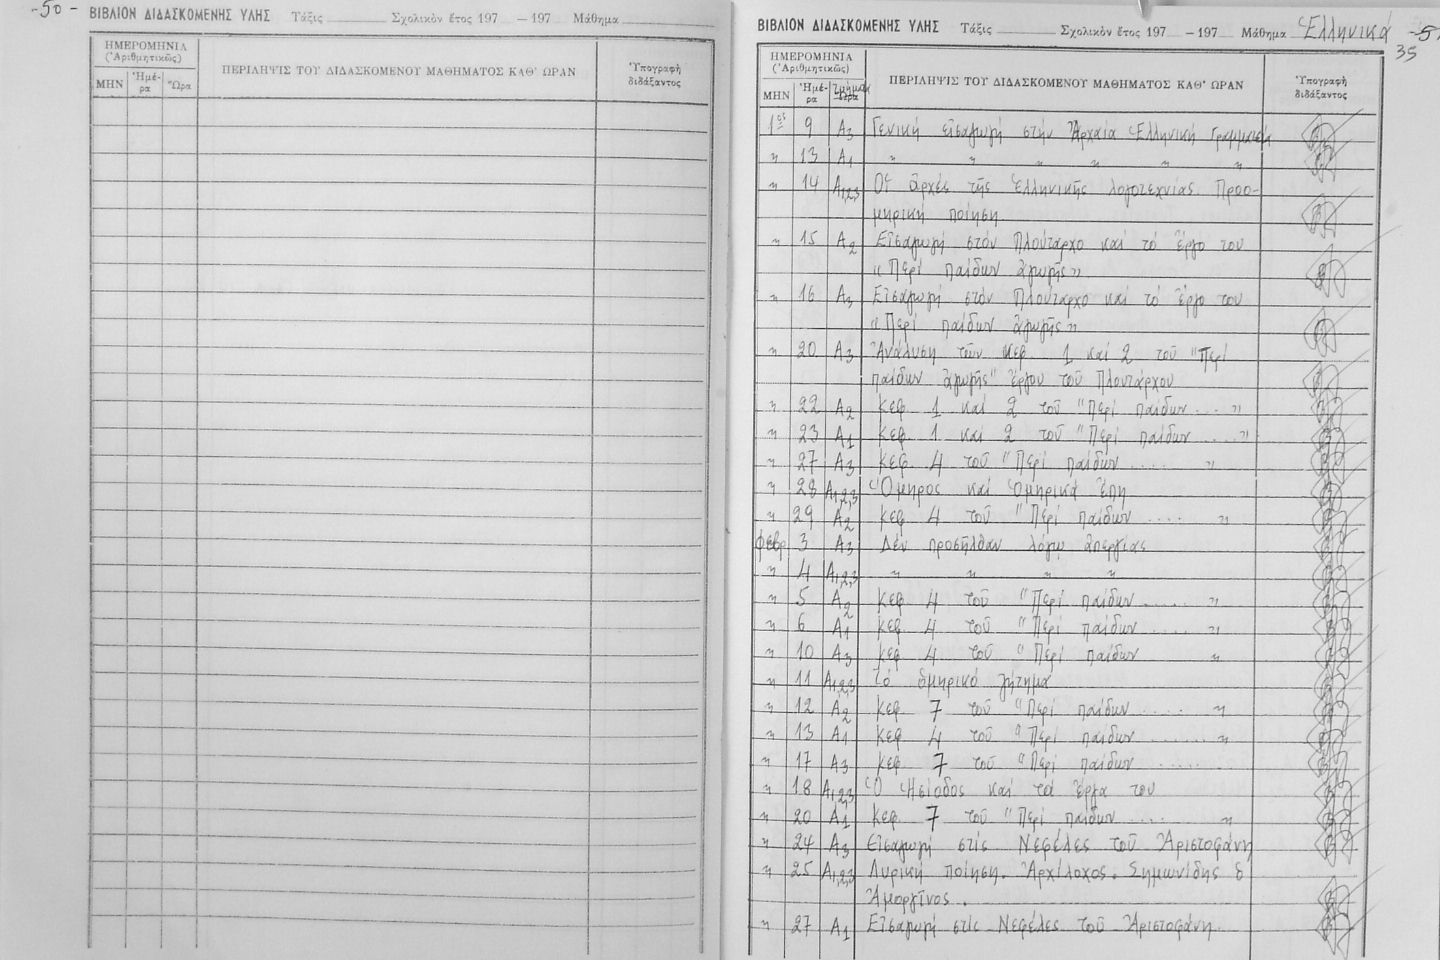 -50-
ΒΙΒΛΙΟΝ ΔΙΔΑΣΚΟΜΕΝΗΣ ΥΛΗΣ Τάξις Σχολικὸν ἔτος 197 — 197 Μάθημα
ΗΜΕΡΟΜΗΝΙΑ
(Ἀριθμητικῶς)
ΜΗΝ Ἡμέ-ρα Ὥρα
ΠΕΡΙΛΗΨΙΣ ΤΟΥ ΔΙΔΑΣΚΟΜΕΝΟΥ ΜΑΘΗΜΑΤΟΣ ΚΑΘ' ΩΡΑΝ
Ὑπογραφὴ
διδάξαντος
ΒΙΒΛΙΟΝ ΔΙΔΑΣΚΟΜΕΝΗΣ ΥΛΗΣ Τάξις Σχολικὸν ἔτος 197 — 197 Μάθημα Ἑλληνικά
35
ΗΜΕΡΟΜΗΝΙΑ
(Ἀριθμητικῶς)
ΜΗΝ Ἡμέ-ρα Τμήμα Ὥρα
ΠΕΡΙΛΗΨΙΣ ΤΟΥ ΔΙΔΑΣΚΟΜΕΝΟΥ ΜΑΘΗΜΑΤΟΣ ΚΑΘ' ΩΡΑΝ
Ὑπογραφὴ
διδάξαντος
1ος 9 Α3 Γενική εἰσαγωγή στήν Ἀρχαία Ἑλληνική Γραμματεία
〃 13 Α1 〃 〃 〃 〃 〃 〃
〃 14 Α1,2,3 Οἱ ἀρχές τῆς Ἑλληνικῆς λογοτεχνίας. Προο-
μηρική ποίηση
〃 15 Α2 Εἰσαγωγή στόν Πλούταρχο καί τό ἔργο του
«Περί παίδων ἀγωγῆς»
〃 16 Α3 Εἰσαγωγή στόν Πλούταρχο καί τό ἔργο του
«Περί παίδων ἀγωγῆς»
〃 20 Α3 Ἀνάλυση τῶν κεφ. 1 καί 2 τοῦ "Περί
παίδων ἀγωγῆς" ἔργου τοῦ Πλουτάρχου
〃 22 Α2 κεφ. 1 καί 2 τοῦ "Περί παίδων .... "
〃 23 Α1 κεφ. 1 καί 2 τοῦ "Περί παίδων ..... "
〃 27 Α3 κεφ. 4 τοῦ "Περί παίδων ..... "
〃 28 Α1,2,3 Ὁμηρος καί Ὁμηρικά Ἔπη
〃 29 Α2 κεφ 4 τοῦ "Περί παίδων ..... "
φεβρ 3 Α3 Δέν προσῆλθαν λόγῳ ἀπεργίας
〃 4 Α1,2,3 〃 〃 〃 〃
〃 5 Α2 κεφ 4 τοῦ "Περί παίδων ...... "
〃 6 Α1 κεφ 4 τοῦ "Περί παίδων ...... "
〃 10 Α3 κεφ 4 τοῦ "Περί παίδων "
〃 11 Α1,2,3 τό ὁμηρικό ζήτημα
〃 12 Α2 κεφ 7 τοῦ "Περί παίδων ..... "
〃 13 Α1 κεφ 4 τοῦ "Περί παίδων ....... "
〃 17 Α3 κεφ 7 τοῦ "Περί παίδων .......
〃 18 Α1,2,3 Ὁ Ἡσίοδος καί τά ἔργα του
〃 20 Α1 κεφ 7 τοῦ "Περί παίδων .... "
〃 24 Α3 Εἰσαγωγή στίς Νεφέλες τοῦ Ἀριστοφάνη
〃 25 Α1,2,3 Λυρική ποίηση. Ἀρχίλοχος. Σημωνίδης ὁ
Ἀμοργῖνος.
〃 27 Α1 Εἰσαγωγή στίς Νεφέλες τοῦ Ἀριστοφάνη